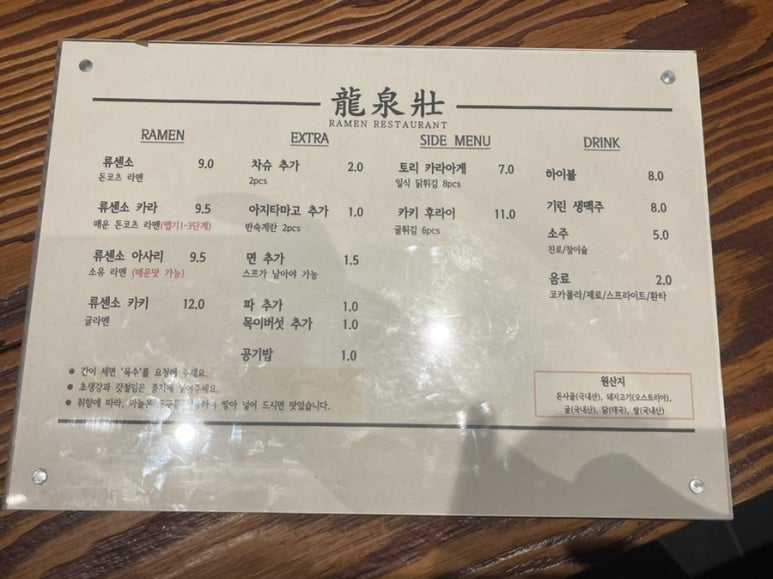 龍泉壯
RAMEN RESTAURANT
RAMEN
류센소 9.0
돈코츠 라멘
류센소 카라 9.5
매운 돈코츠 라멘(맵기1-3단계)
류센소 아사리 9.5
소유 라멘 (매운맛 가능)
류센소 카키 12.0
굴라멘
EXTRA
차슈 추가 2.0
2pcs
아지타마고 추가 1.0
반숙계란 2pcs
면 추가 1.5
스프가 남아야 가능
파 추가 1.0
목이버섯 추가 1.0
공기밥 1.0
SIDE MENU
토리 카라아게 7.0
일식 닭튀김 8pcs
카키 후라이 11.0
굴튀김 6pcs
DRINK
하이볼 8.0
기린 생맥주 8.0
소주 5.0
진로/참이슬
음료 2.0
코카콜라/제로/스프라이트/환타
● 간이 세면 '육수'를 요청해 주세요.
● 초생강과 갓절임은 종지에 덜어주세요.
● 취향에 따라, 마늘은 빻아 넣어 드시면 맛있습니다.
원산지
돈사골(국내산), 돼지고기(오스트리아),
굴(국내산), 닭(태국), 쌀(국내산)